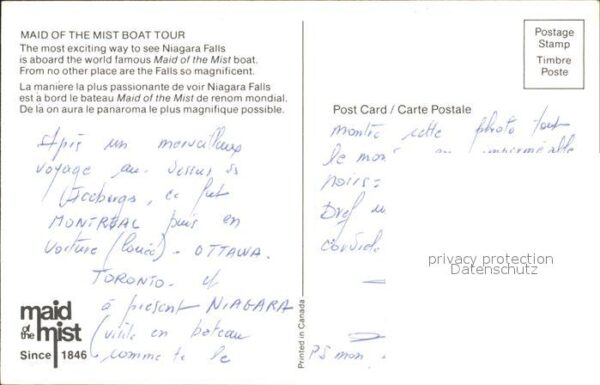 MAID OF THE MIST BOAT TOUR
The most exciting way to see Niagara Falls
is aboard the world famous Maid of the Mist boat.
From no other place are the Falls so magnificent.
La manière la plus passionante de voir Niagara Falls
est à bord le bateau Maid of the Mist de renom mondial.
De la on aura le panaroma le plus magnifique possible.
Après un merveilleux
voyage au dessus des
Icebergs, ce fut
MONTREAL puis en
voiture (louée) - OTTAWA.
TORONTO - et
à présent NIAGARA
(visite en bateau
comme te le
maid
of the
mist
Since 1846
Printed in Canada
Postage
Stamp
Timbre
Poste
Post Card / Carte Postale
montre cette photo tout
le
noirs =
Bref
PS mon
privacy protection
Datenschutz